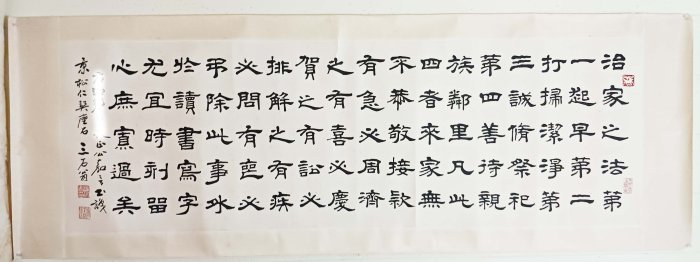 治家之法第
一起早第二
打掃潔淨第
三誠脩祭祀
第四善待親
族鄰里凡此
四者來家無
不恭敬接款
有急必周濟
之有喜必慶
賀之有訟必
排解之有疾
必問有喪必
弔除此事外
於讀書寫字
尤宜時刻留
心庶寡過矣
正公
三石翁